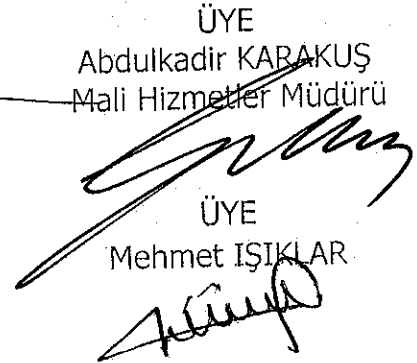 ÜYE
Abdulkadir KARAKUŞ
Mali Hizmetler Müdürü
ÜYE
Mehmet IŞIKLAR